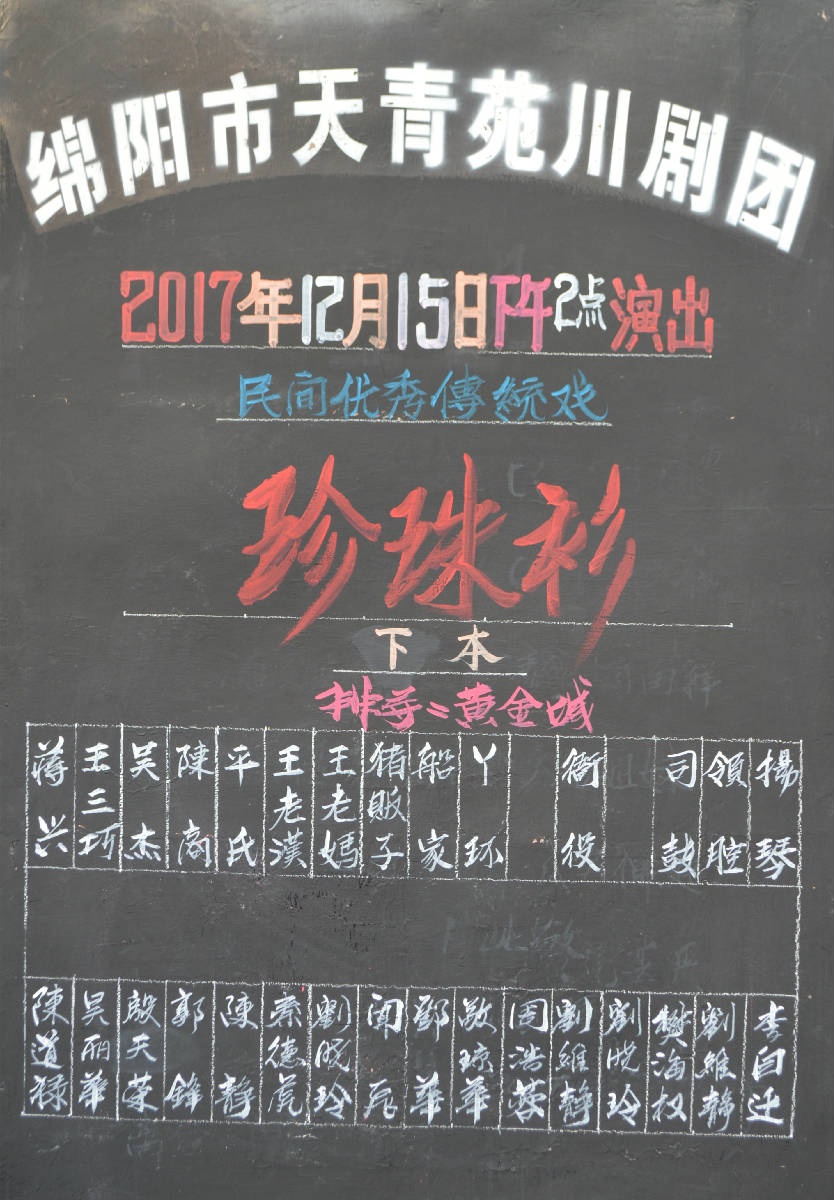 绵阳市天青苑川剧团
2017年12月15日下午2点演出
民间优秀傳統戏
珍珠衫
下本
排导：黄金城
蒋兴 王三巧 吴杰 陳商 平氏 王老漢 王老媽 猪販子 船家 丫环 衙役 司鼓 領腔 揚琴
陳道禄 吴丽華 殷天荣 郭鋒 陳静 秦德虎 劉晓玲 鄧華 敬琼華 周浩蓉 劉維静 劉晓玲 樊海权 劉維静 李自迁